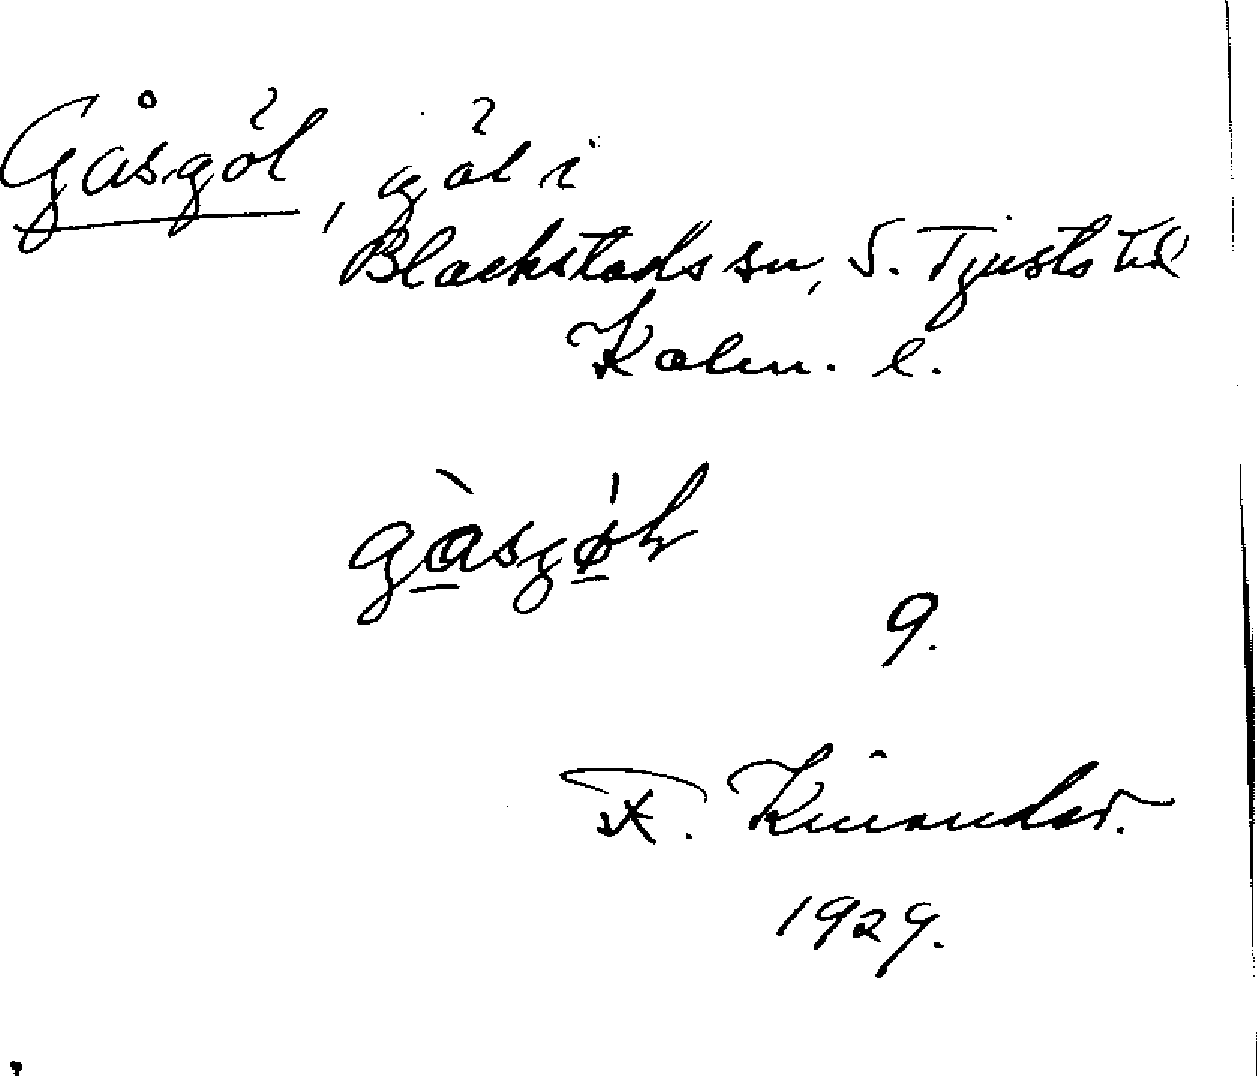 Gåsgöl, göl i
Blackstads sn, S. Tjusts hd
Kalm. l.
gàsgø̀l
9.
F. Kinander.
1929.